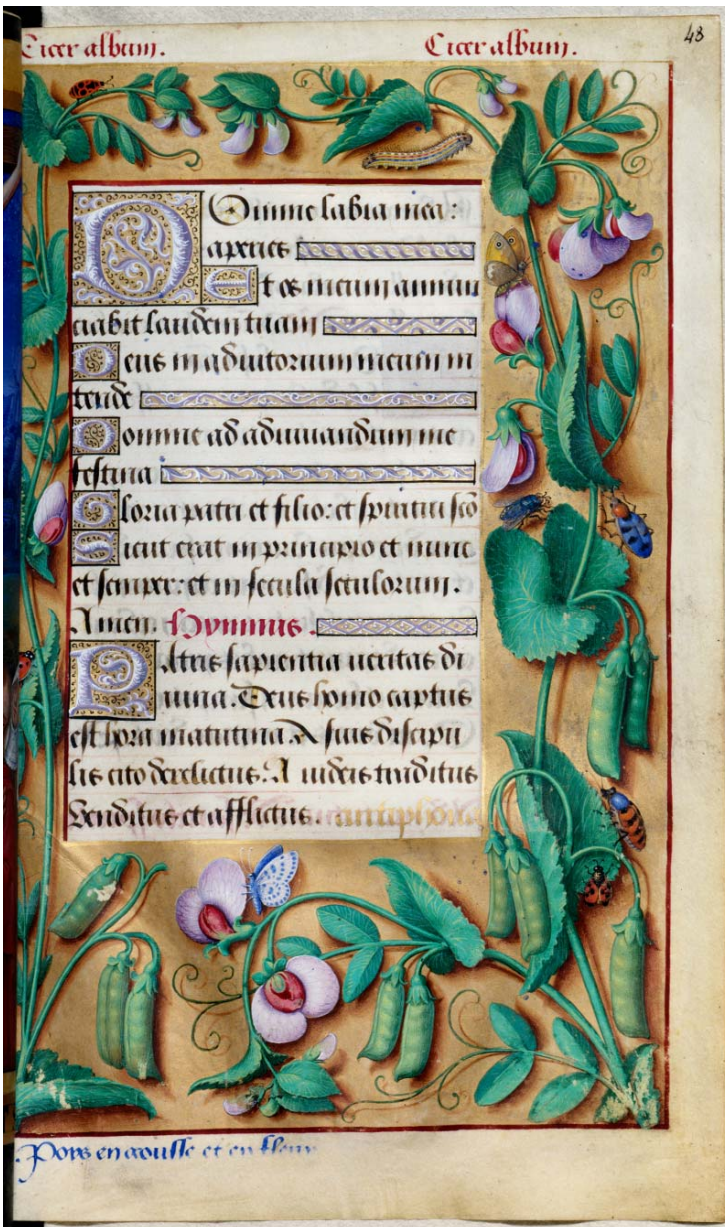 Cicer album. Cicer album.
48
Domine labia mea:
aperies
Et os meum annun
ciabit laudem tuam
Deus in adiutorium meum in
tende
Domine ad adiuuandum me
festina
Gloria patri et filio: et spiritui sco
Sicut erat in principio et nunc
et semper: et in secula seculorum.
Amen. Hymnus.
Patris sapientia ueritas di
uina. Deus homo captus
est hora matutina. A suis discipu
lis cito derelictus. A iudeis traditus
Venditus et afflictus. antiphona
Poys en gousse et en fleur